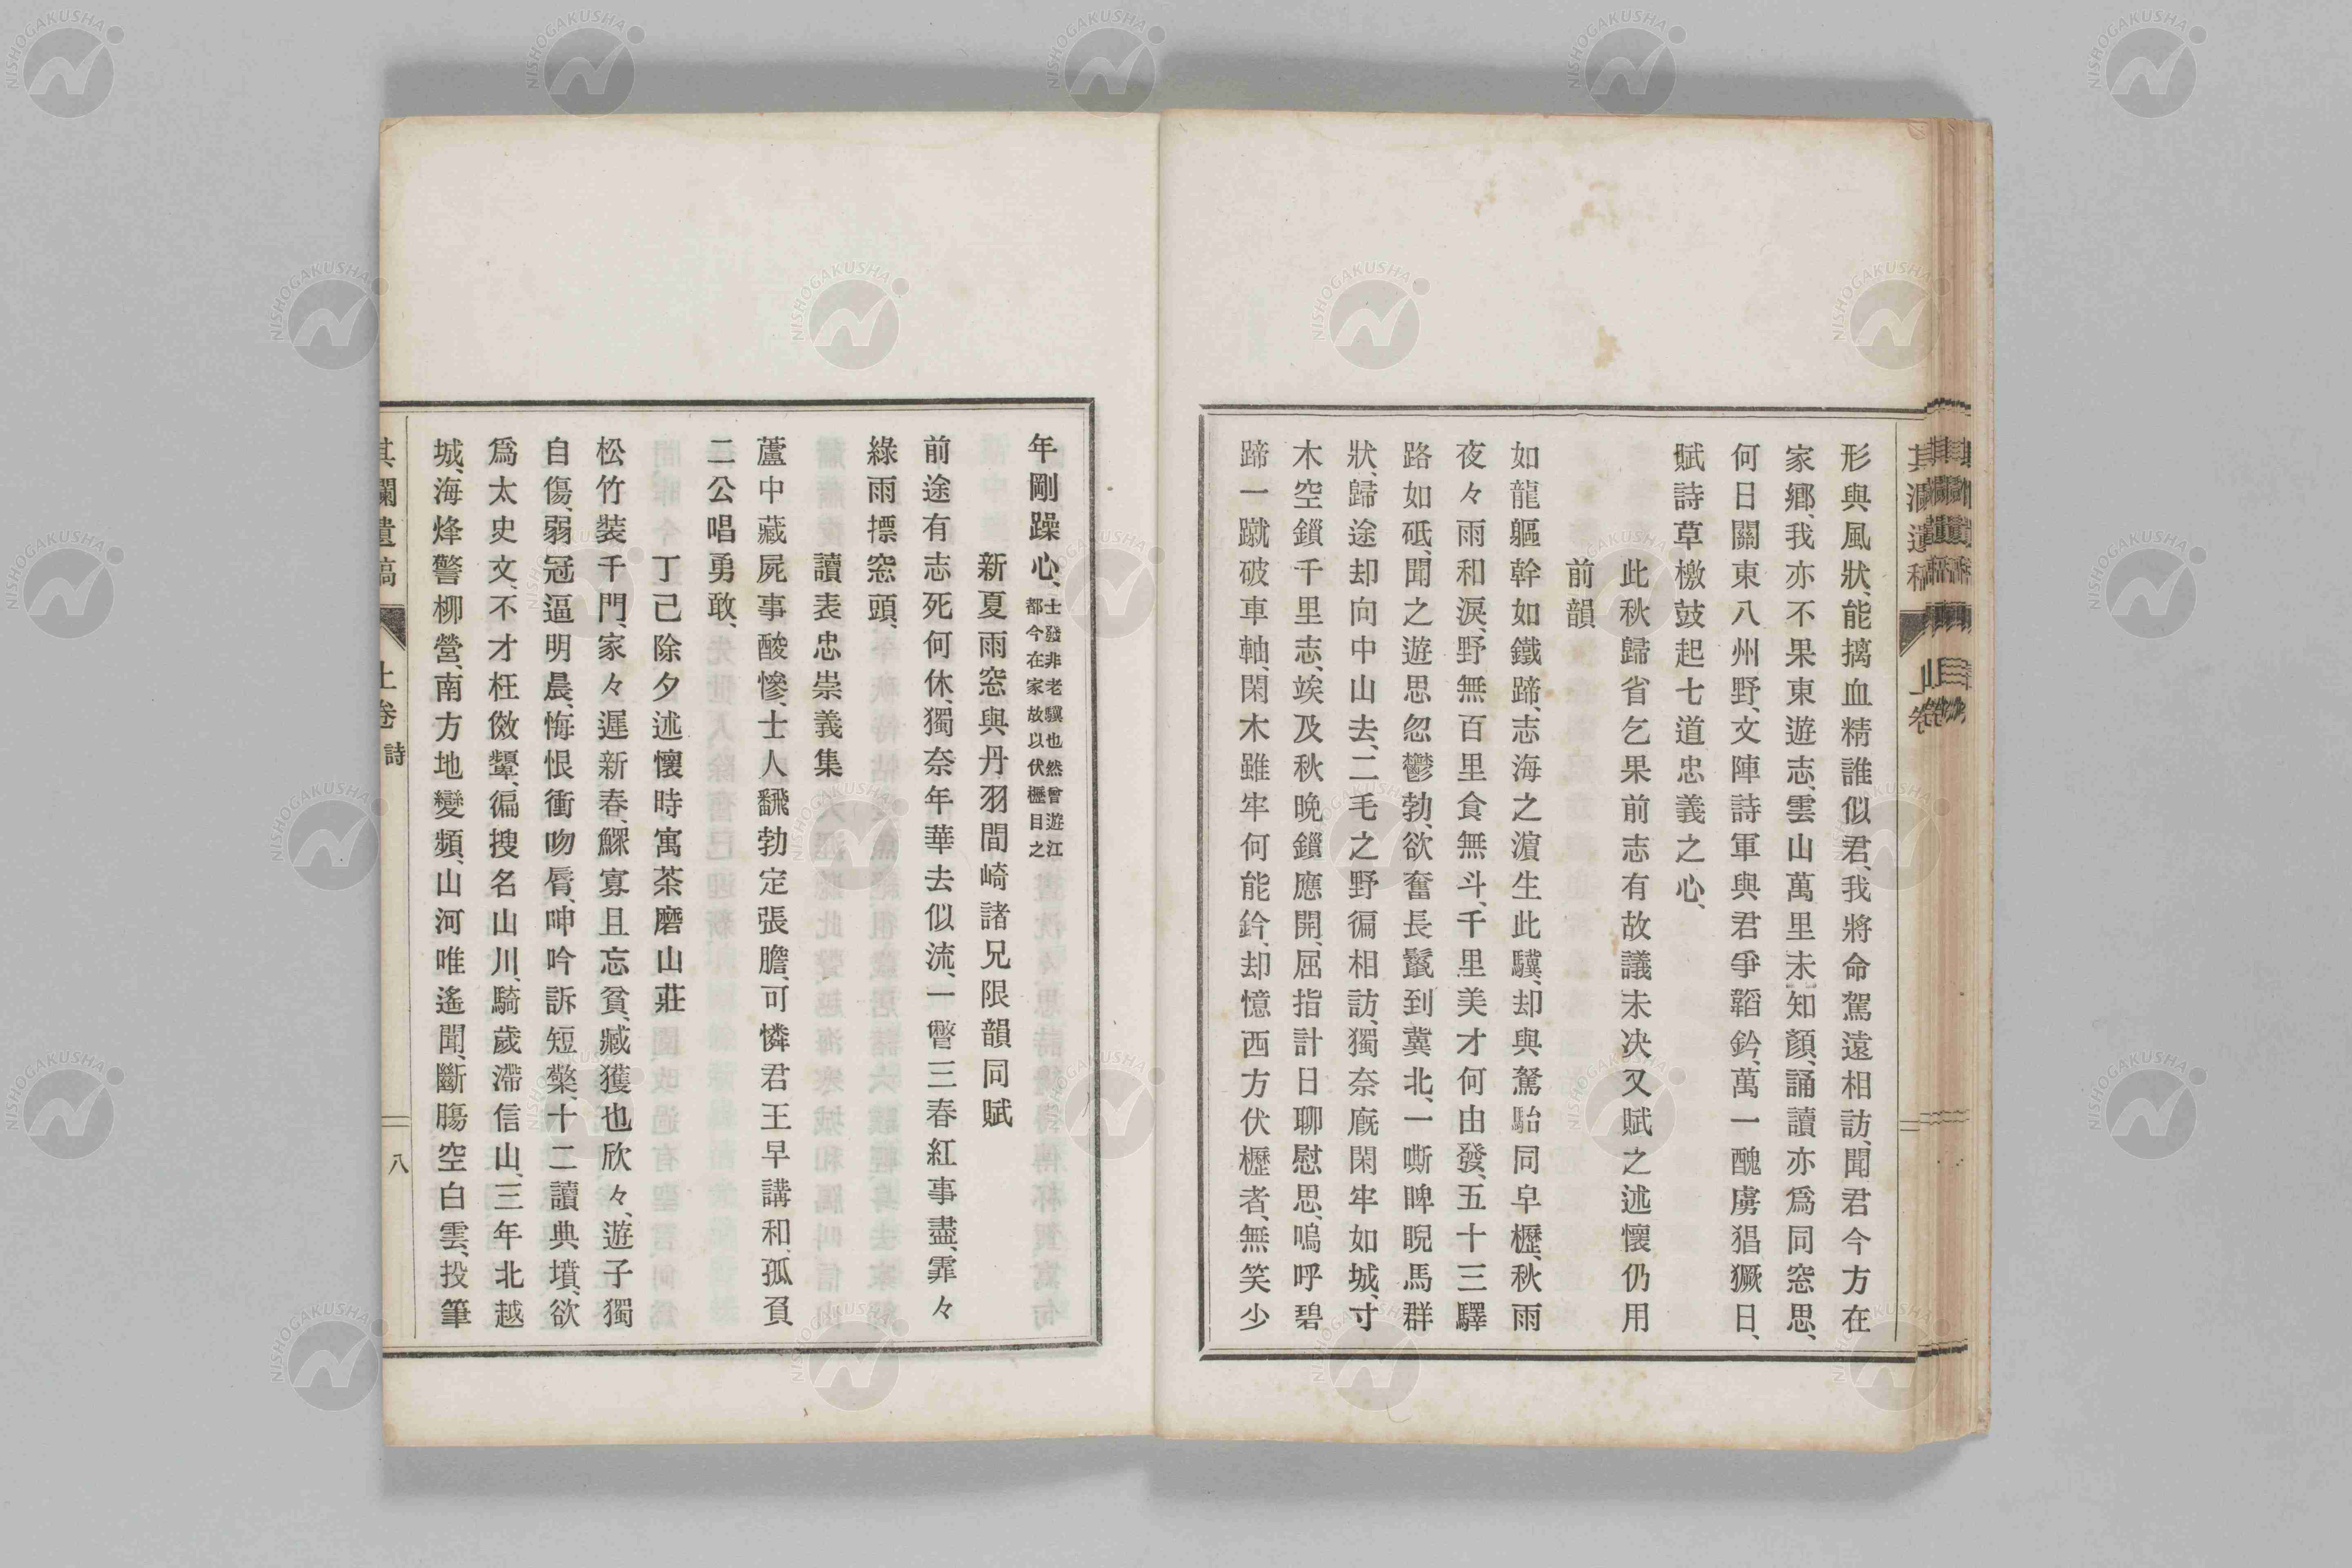 形與風狀、能摛血精誰似君、我將命駕遠相訪、聞君今方在
家鄉、我亦不果東遊志、雲山萬里未知顏、誦讀亦爲同窓思、
何日關東八州野、文陣詩軍與君爭韜鈐、萬一醜虜猖獗日、
賦詩草檄鼓起七道忠義之心、
此秋歸省乞果前志有故議未决又賦之述懷仍用
前韻
如龍軀幹如鐵蹄、志海之濵生此驥、却與駑駘同皁櫪、秋雨
夜々雨和淚、野無百里食無斗、千里美才何由發、五十三驛
路如砥、聞之遊思忽鬱勃、欲奮長鬣到冀北、一嘶睥睨馬群
狀、歸途却向中山去、二毛之野徧相訪、獨奈廐閑牢如城、寸
木空鎖千里志、竢及秋晚鎻應開、屈指計日聊慰思、嗚呼碧
蹄一蹴破車軸、閑木雖牢何能鈐、却憶西方伏櫪者、無笑少
年剛躁心、
士發非老驥也然曾遊江
都今在家故以伏櫪目之
新夏雨窓與丹羽間崎諸兄限韻同賦
前途有志死何休、獨奈年華去似流、一瞥三春紅事盡、霏々
綠雨摽窓頭、
讀表忠崇義集
蘆中藏屍事酸慘、士人飜勃定張膽、可憐君王早講和、孤負
二公唱勇敢、
丁己除夕述懷時寓茶磨山莊
松竹裝千門、家々遲新春、鰥寡且忘貧、臧獲也欣々、遊子獨
自傷、弱冠逼明晨、悔恨衝吻脣、呻吟訴短檠、十二讀典墳、欲
爲太史文、不才枉傚顰、徧搜名山川、騎歲滯信山、三年北越
城、海烽警柳營、南方地變頻、山河唯遙聞、斷膓空白雲、投筆
其瀾遺稿 上卷 詩 八
NISHOGAKUSHA